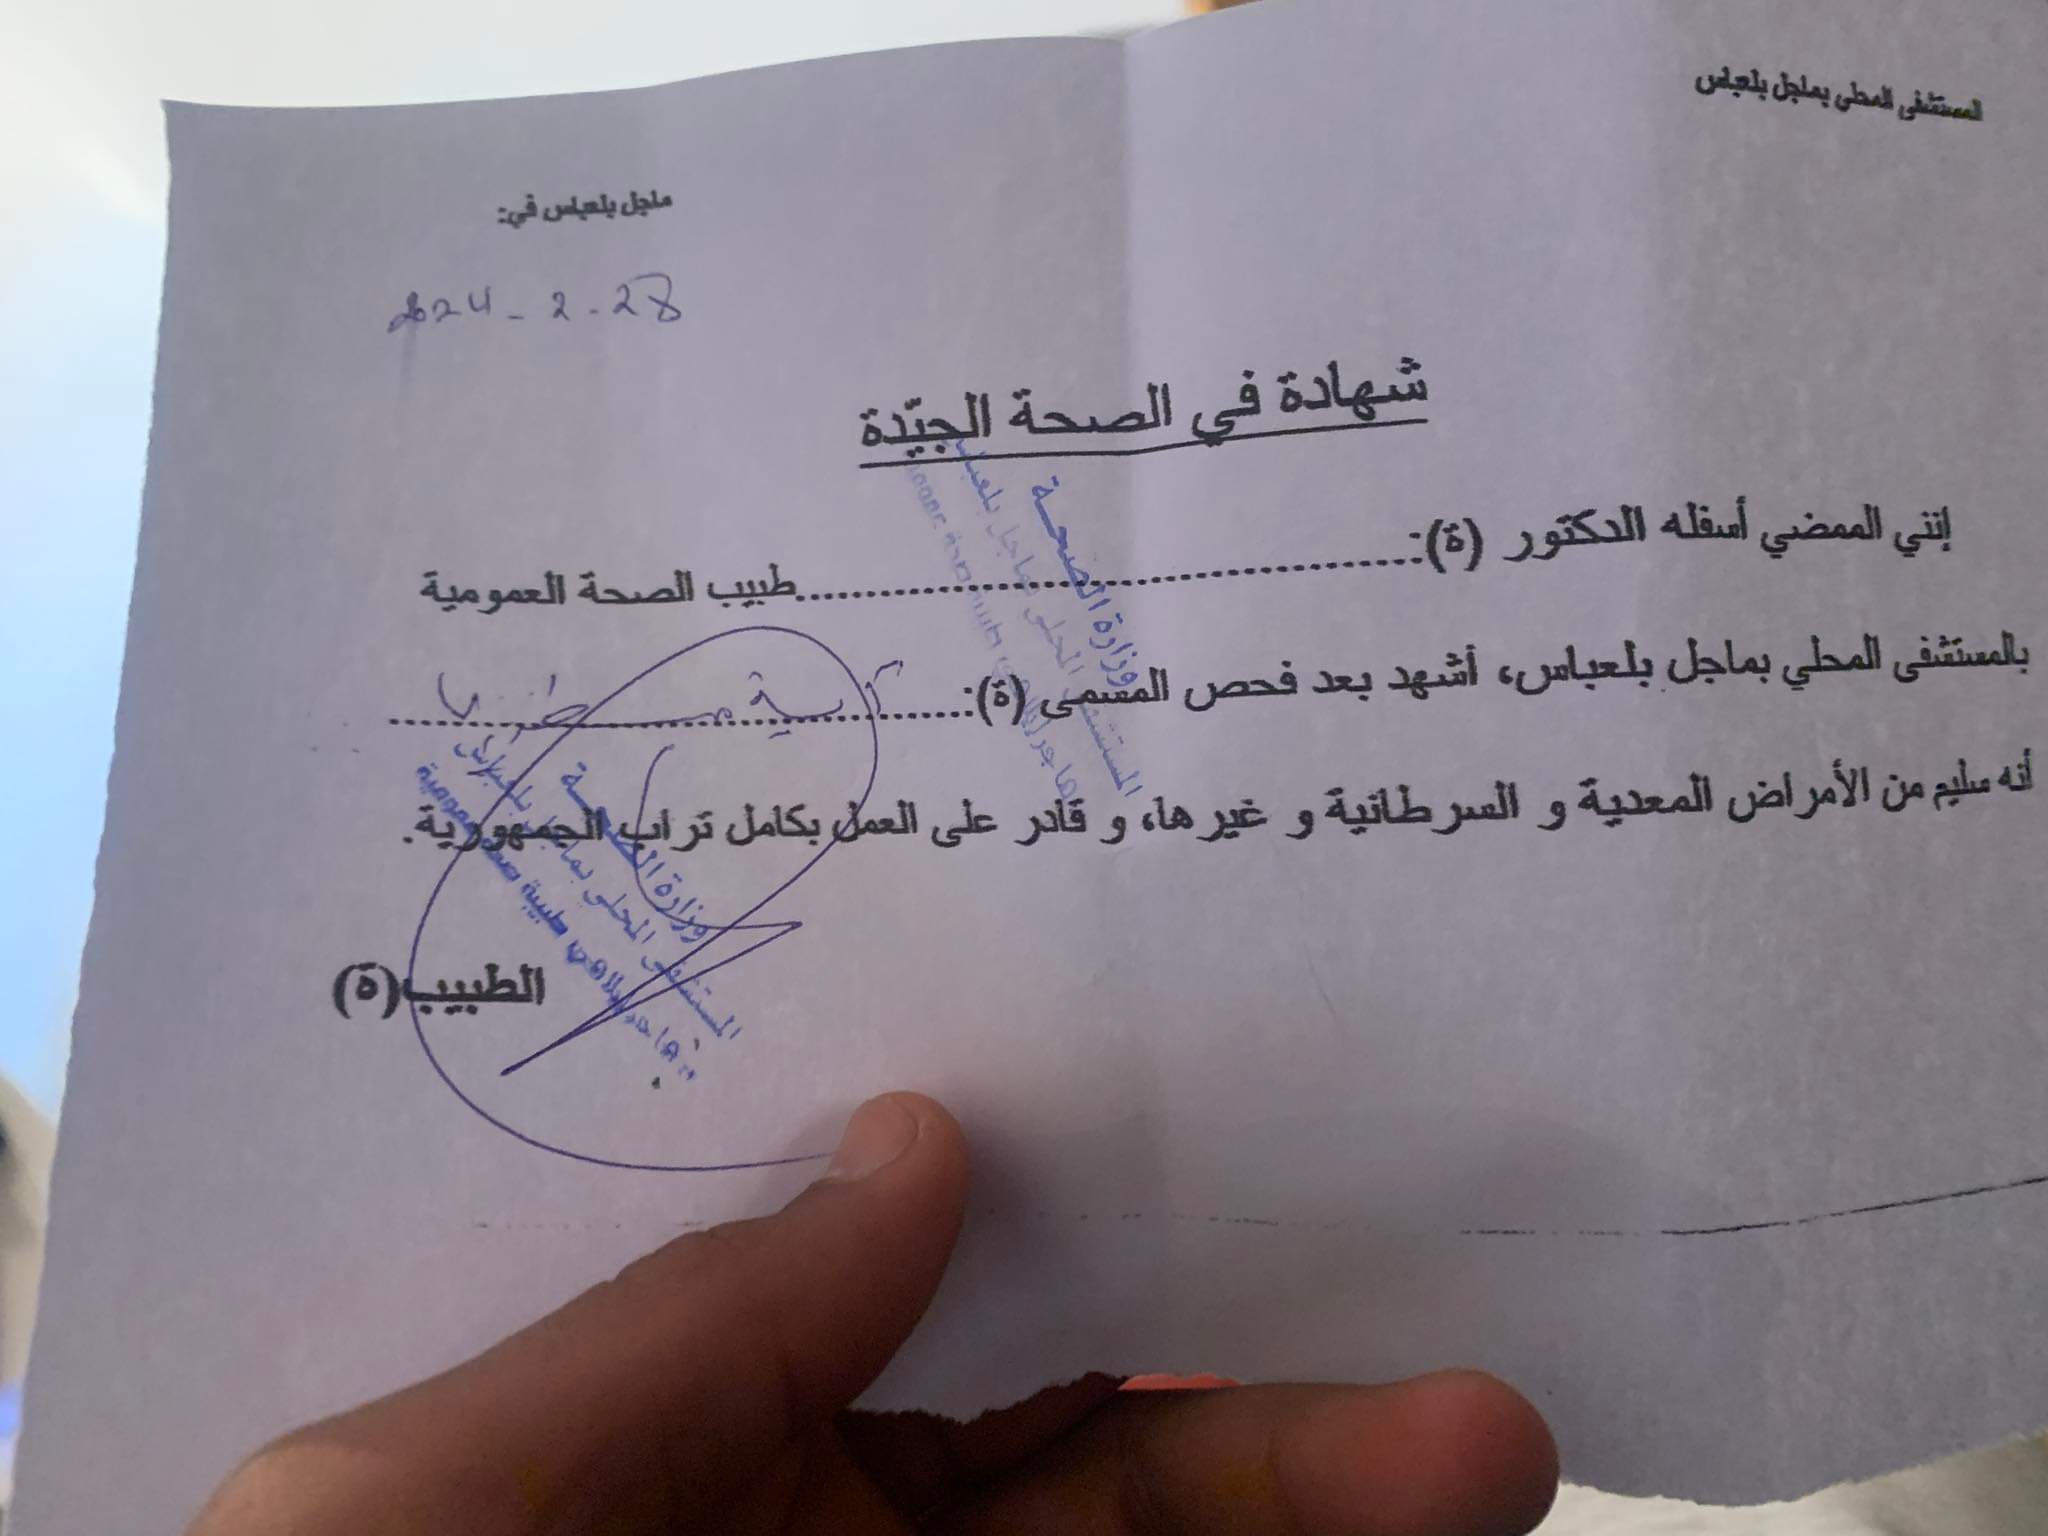 المستشفى المحلي بماجل بلعباس
ماجل بلعباس في:
2024 - 2 - 28
شهادة في الصحة الجيّدة
إنني الممضي أسفله الدكتور (ة):..............................طبيب الصحة العمومية
وزارة الصحة
المستشفى المحلي بماجل بلعباس
بالمستشفى المحلي بماجل بلعباس، أشهد بعد فحص المسمى (ة):..............................
أنه سليم من الأمراض المعدية و السرطانية و غيرها، و قادر على العمل بكامل تراب الجمهورية.
وزارة الصحة
المستشفى المحلي بماجل بلعباس
طبيبة صحة عمومية
الطبيب(ة)